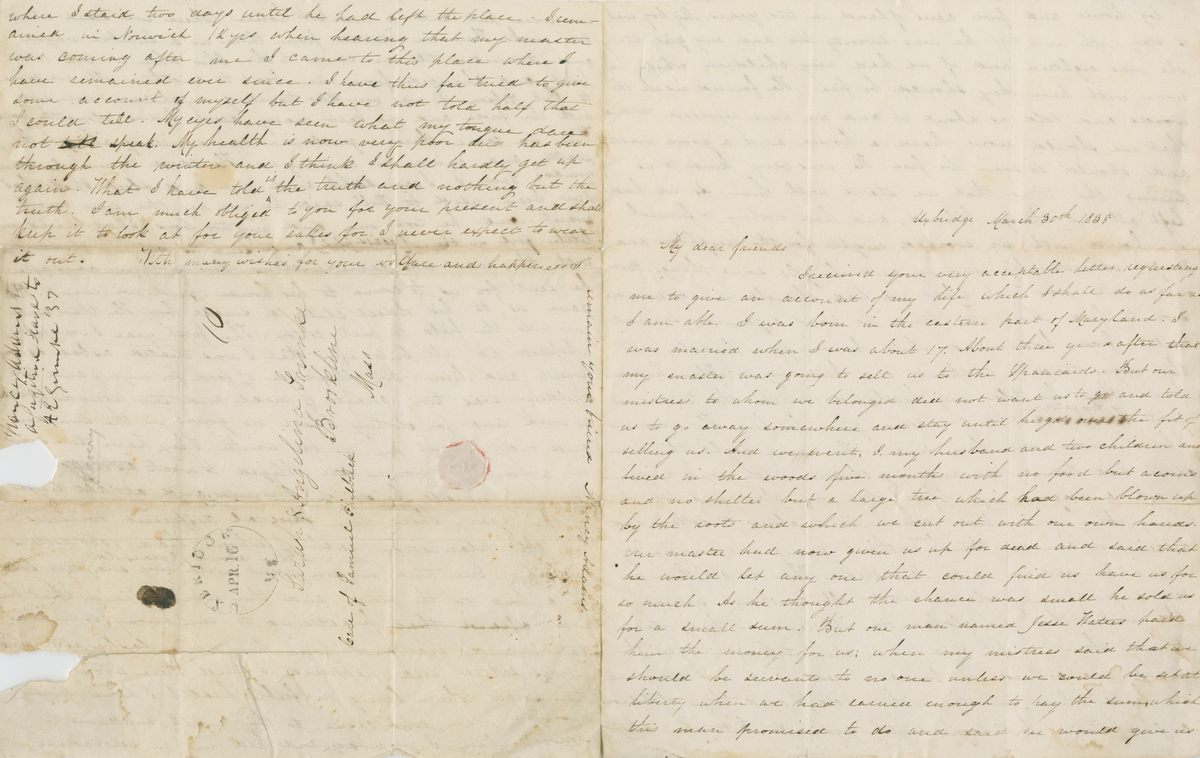 where I staid two days until he had left the place. I rem-
ained in Norwich 12 yrs when hearing that my master
was coming after me I came to this place where I
have remained ever since. I have thus far tried to give
some account of myself but I have not told half that
I could tell. My eyes have seen what my tongue dare
not speak. My health is now very poor and has been
through the winter and I think I shall hardly get up
again. What I have told is the truth and nothing but the
truth. I am much obliged to you for your present and shall
keep it to look at for your sakes for I never expect to wear
it out. With many wishes for your welfare and happiness I
remain your friend Nancy Adams
Nancy Adams
a fugitive slave to
A E Grimke '37
Nancy
10
UXBRIDGE
APR. 10
MS
Sarah & Angelina Grimke
Brookline
Mass
care of Samuel Philbrick
Uxbridge March 30th 1838
My dear friends
I received your very acceptable letter, requesting
me to give an account of my life which I shall do as far as
I am able. I was born in the eastern part of Maryland. I
was married when I was about 17. About three years after that
my master was going to sell us to the Spaniards. But our
mistress to whom we belonged did not want us to go and told
us to go away somewhere and stay until he got over the fit of
selling us. And we went, I, my husband and two children and
lived in the woods five months with no food but acorns
and no shelter but a large tree which had been blown up
by the roots and which we cut out with our own hands
our master had now given us up for dead and said that
he would let any one that could find us have us for
so much. As he thought the chance was small he sold us
for a small sum. But one man named Jesse Waters paid
him the money for us; when my mistress said that we
should be servants to no one unless we could be s at
liberty when we had earned enough to pay the sum, which
this man promised to do and said he would give us